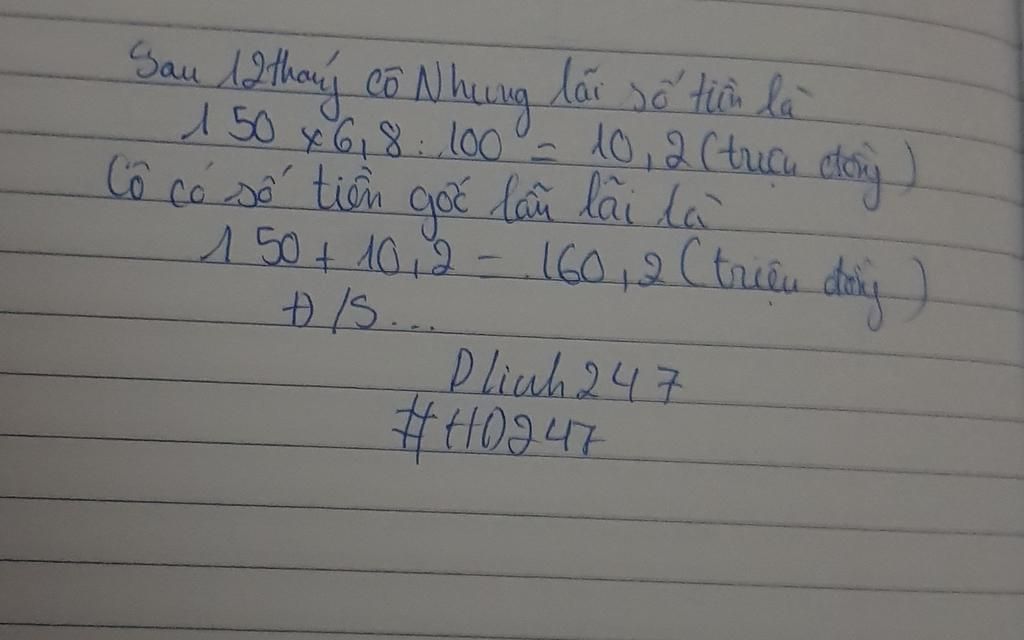 Sau 12 tháng cô Nhung lãi số tiền là
150 x 6,8 : 100 = 10,2 (triệu đồng)
Cô có số tiền gốc lẫn lãi là
150 + 10,2 = 160,2 (triệu đồng)
Đ/S...
Dlinh247
#HD247